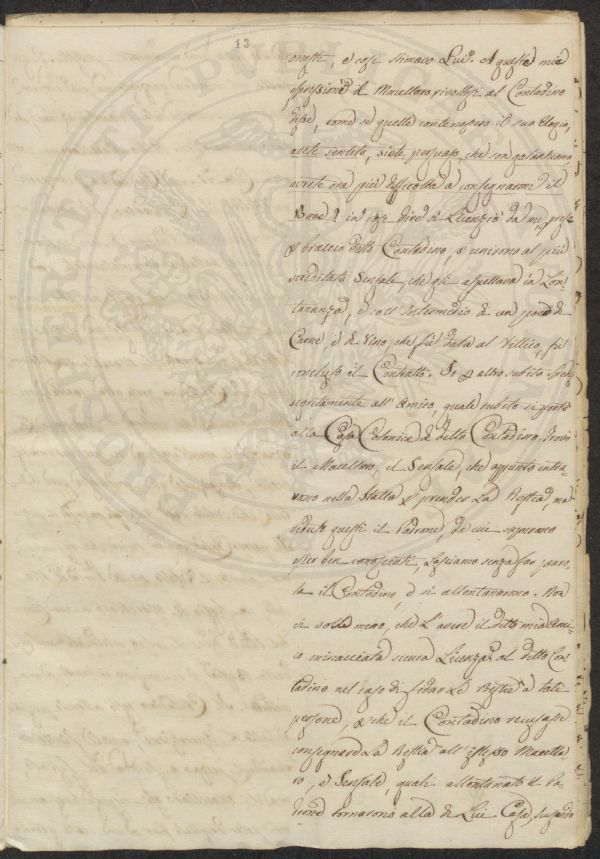 13
oneste, e cose stimavo Lui. A queste mie
espressioni il Macellaro rivoltosi al Contadino
disse, come se quelle contenessero il suo Elogio,
avete sentito, siete persuaso, che son galantuomo
avrete ora più difficoltà a consegnarmi il
Bove? e in così dire di Licenziò da me, prese
braccio detto Contadino, e unirono al più
screditato Sensale, che gli aspettava in Lon-
tananza, e coll' intermedio di un poco di
Carne, e di Vino, che fù data al Villico, fù
concluso il Contratto. Io altro subito
segretamente all' Amico, quale subito si portò
alla Casa Colonica di detto Contadino. Trovò
il Macellaro, il Sensale, che appunto entra-
vano nella Stalla prender La Bestia, ma
veduto questi il Padrone, da cui sapevano
esser ben conosciuti, Lasciamo senza far paro-
la il Contadino, e si allontanarono. Non
vi volle meno, che L'avere il detto mio Ami-
co minacciata sicura Licenza al detto Con-
tadino nel caso di fidar Le Bestie a tale
persone, che il Contadino recusasse
consegnare La Bestia all' istesso Macella-
ro, e Sensale, quali allontanato il Pa-
drone tornarono alla di Lui Casa,
PROPRIETATI PUBLICAE